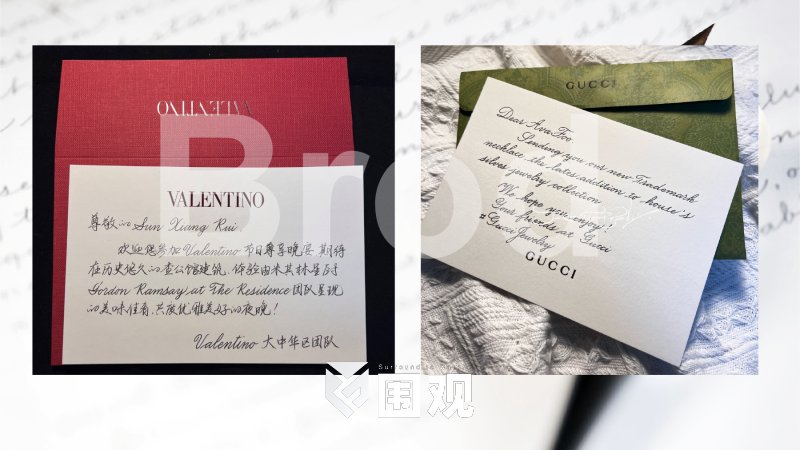 VALENTINO
VALENTINO
尊敬的 Sun Xiang Rui
欢迎您参加 Valentino 节日尊享晚宴，期待
在历史悠久的壹公馆建筑，体验由米其林星厨
Gordon Ramsay at The Residence 团队呈现
的美味佳肴，共度优雅美好的夜晚！
Valentino 大中华区团队
GUCCI
Dear Ava Foo
Sending you our new Trademark
necklace, the lates addition to house's
silves jewelry collection
We hope you enjoy!
Your friends at Gucci
#Gucci Jewelry
GUCCI
Brod
Surround
围观